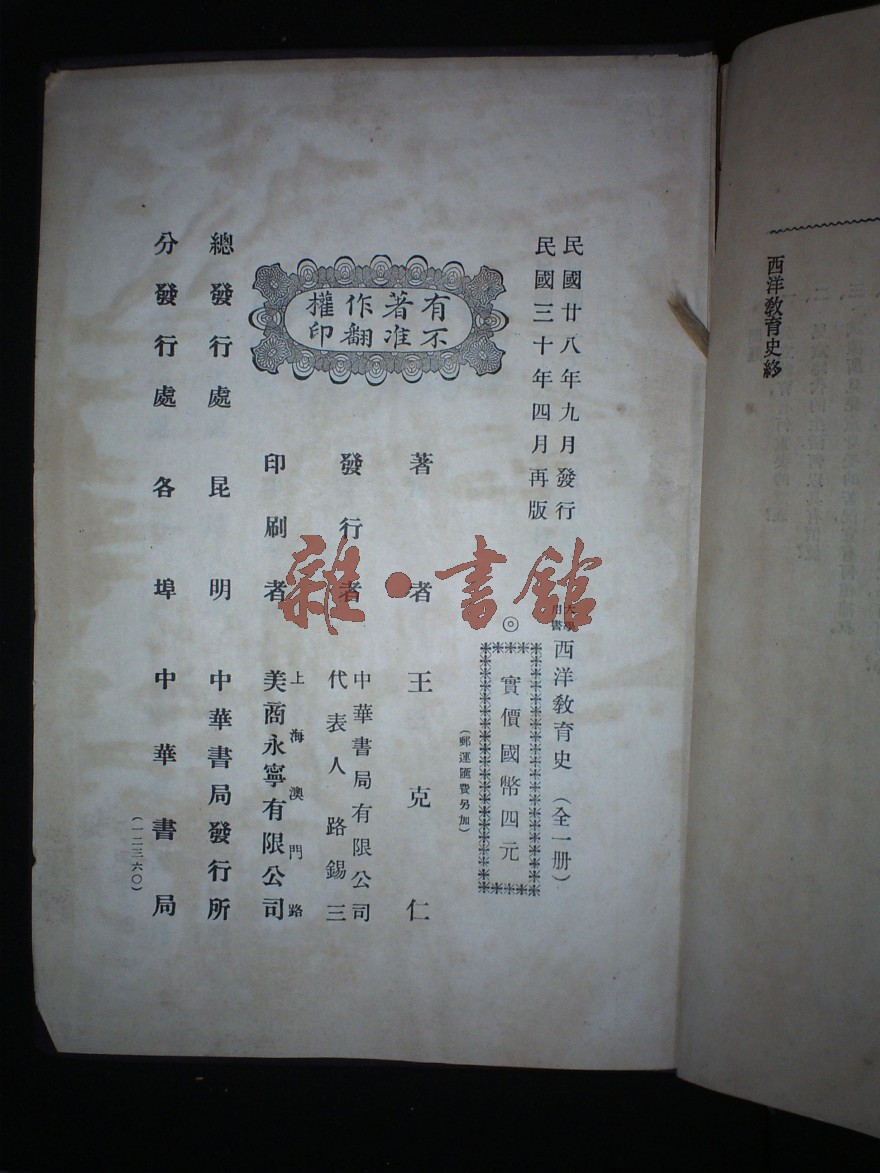 西洋教育史終
民國廿八年九月發行
民國三十年四月再版
大學用書
西洋教育史（全一册）
◎
實價國幣四元
（郵運匯費另加）
有著作權
不准翻印
著者 王克仁
發行者 中華書局有限公司
代表人路錫三
印刷者 上海澳門路
美商永寧有限公司
總發行處 昆明 中華書局發行所
分發行處 各埠 中華書局
（一二三六〇）
雜·書館